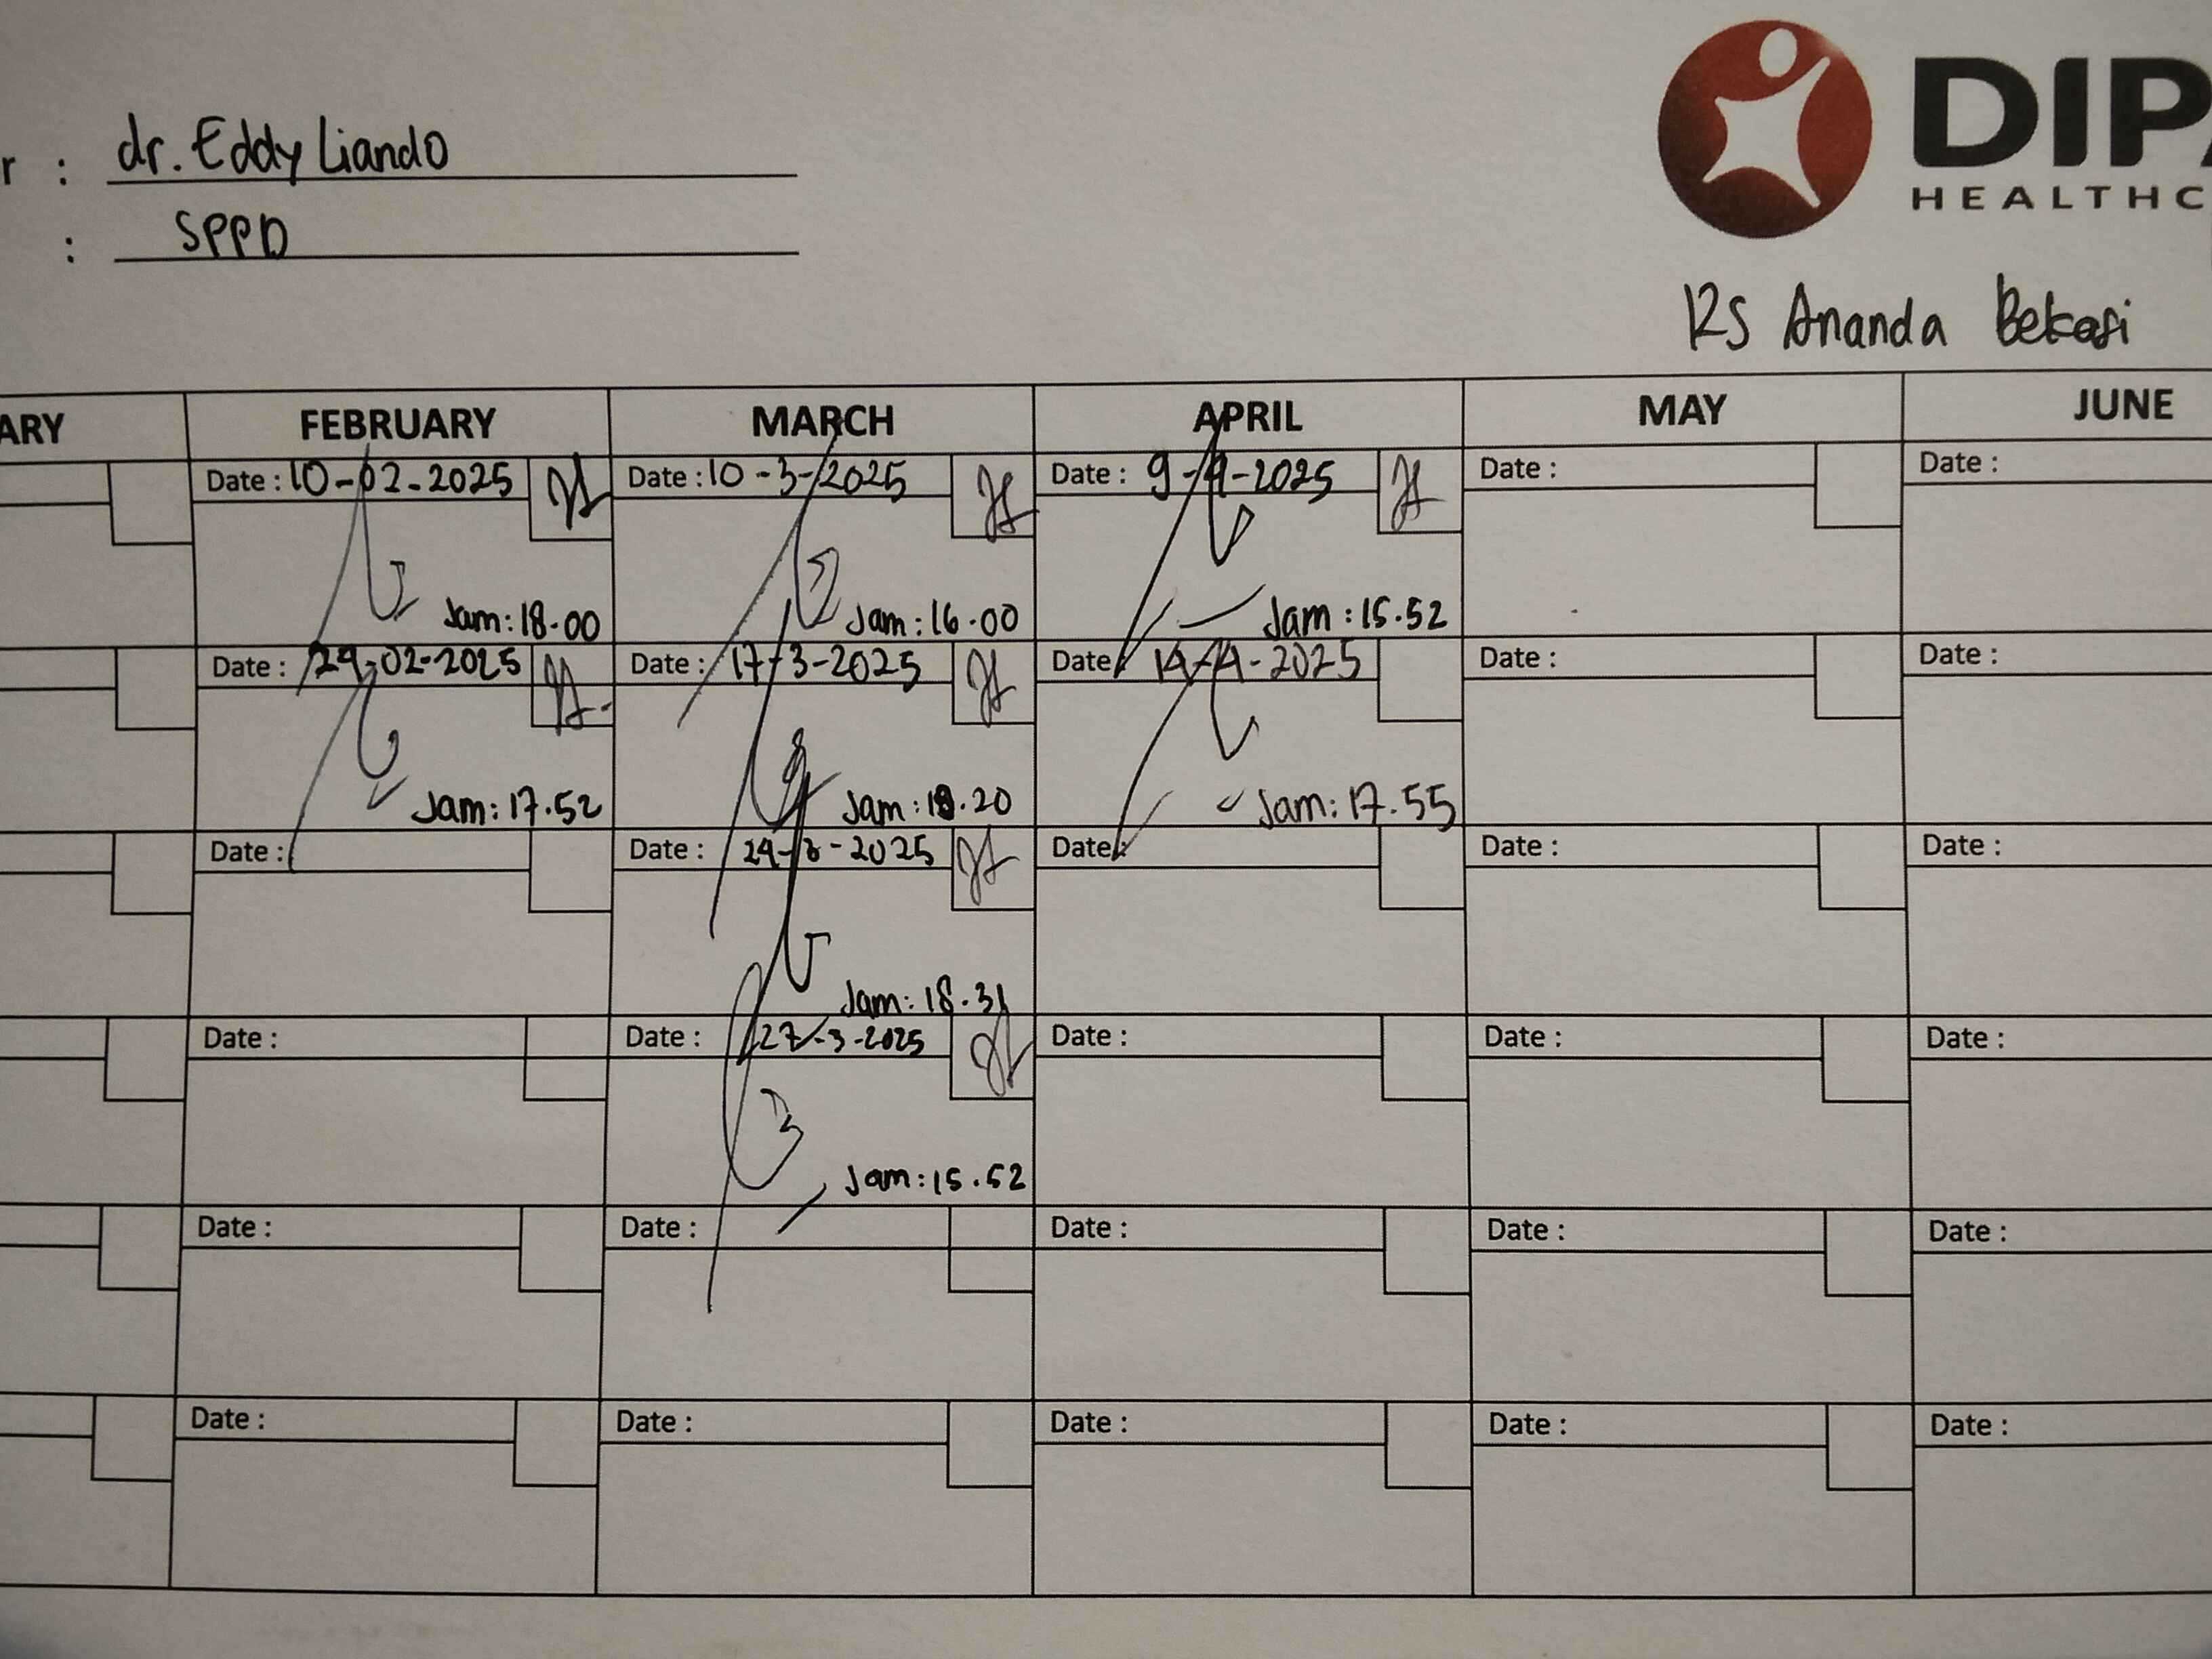 DIPA
HEALTHC
r : dr. Eddy Liando
: SPPD
RS Ananda Bekasi
ARY FEBRUARY MARCH APRIL MAY JUNE
Date : 10-02-2025 Date : 10-3-2025 Date : 9-4-2025 Date : Date :
Jam: 18.00 Jam: 16.00 Jam: 15.52
Date : 24-02-2025 Date : 17-3-2025 Date : 14-4-2025 Date : Date :
Jam: 17.52 Jam: 18.20 Jam: 17.55
Date : Date : 24-3-2025 Date : Date : Date :
Jam: 18.31
Date : Date : 27-3-2025 Date : Date : Date :
Jam: 15.52
Date : Date : Date : Date : Date :
Date : Date : Date : Date : Date :